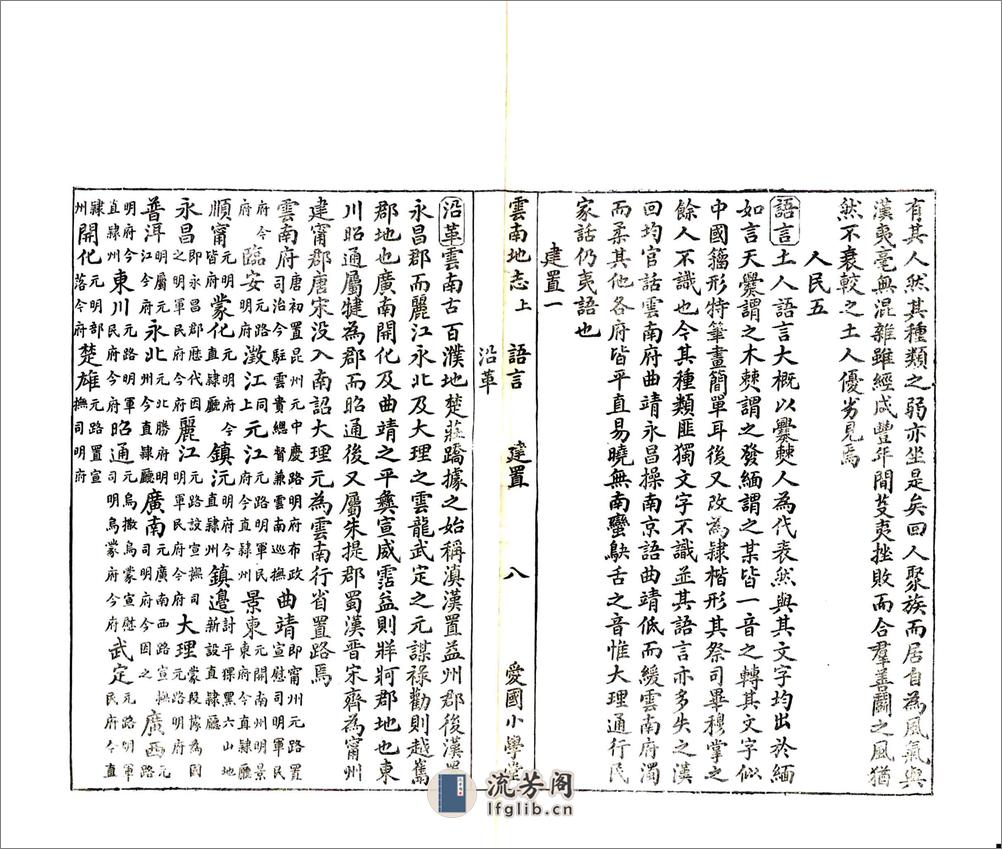 有其人然其種類之弱亦坐是矣回人聚族而居自為風氣與
漢夷毫無混雜雖經咸豐年間芟夷挫敗而合羣善鬭之風猶
然不衰較之土人優劣見焉
人民五
語言土人語言大概以爨僰人為代表然與其文字均出於緬
如言天爨謂之木僰謂之發緬謂之某皆一音之轉其文字似
中國籀形特筆畫簡單耳後又改為隸楷形其祭司畢穆掌之
餘人不識也今其種類匪獨文字不識並其語言亦多失之漢
回均官話雲南府曲靖永昌操南京語曲靖低而緩雲南府濁
而柔其他各府皆平直易曉無南蠻鴃舌之音惟大理通行民
家話仍夷語也
建置一
雲南地志上 語言 建置 八 愛國小學堂
沿革
沿革雲南古百濮地楚莊蹻據之始稱滇漢置益州郡後漢置
永昌郡而麗江永北及大理之雲龍武定之元謀祿勸則越嶲
郡地也廣南開化及曲靖之平彝宣威霑益則牂牁郡地也東
川昭通屬犍為郡而昭通後又屬朱提郡蜀漢晉宋齊為甯州
建甯郡唐宋没入南詔大理元為雲南行省置路焉
雲南府唐初置昆州元中慶路明府布政司治今駐雲貴總督兼雲南巡撫曲靖即甯州元路置宣慰司明軍民
府今府臨安元路明軍民府今府澂江元路明府今上同元江元路明軍民府今直隸州討平猓黑六山地景東元開南州明景東府今直隸廳
順甯元明府今皆府蒙化元路明府今直隸廳鎮沅明府今直隸州鎮邊新設直隸廳
永昌即永昌郡歷代因之明軍民今府麗江元路設宣撫司明軍民府今府大理蒙段僭為國元路明府今府
普洱明屬元江今府永北元北勝府明州今直隸廳廣南元廣南西路宣撫司明府今因之廣西元路
明府今直隸州東川元路明軍民府今府昭通元烏撒烏蒙宣慰司明烏蒙府今府武定元路明軍民府今直
隸州開化元明部落今府楚雄元路置宣撫司明府
流芳阁
lfglib.cn